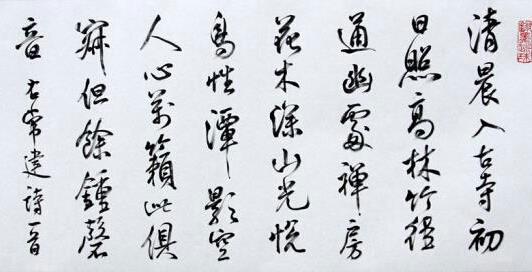 清晨入古寺初
日照高林竹徑
通幽處禪房
花木深山光悅
鳥性潭影空
人心萬籟此俱
寂但餘鍾磬
音 右常建詩一首